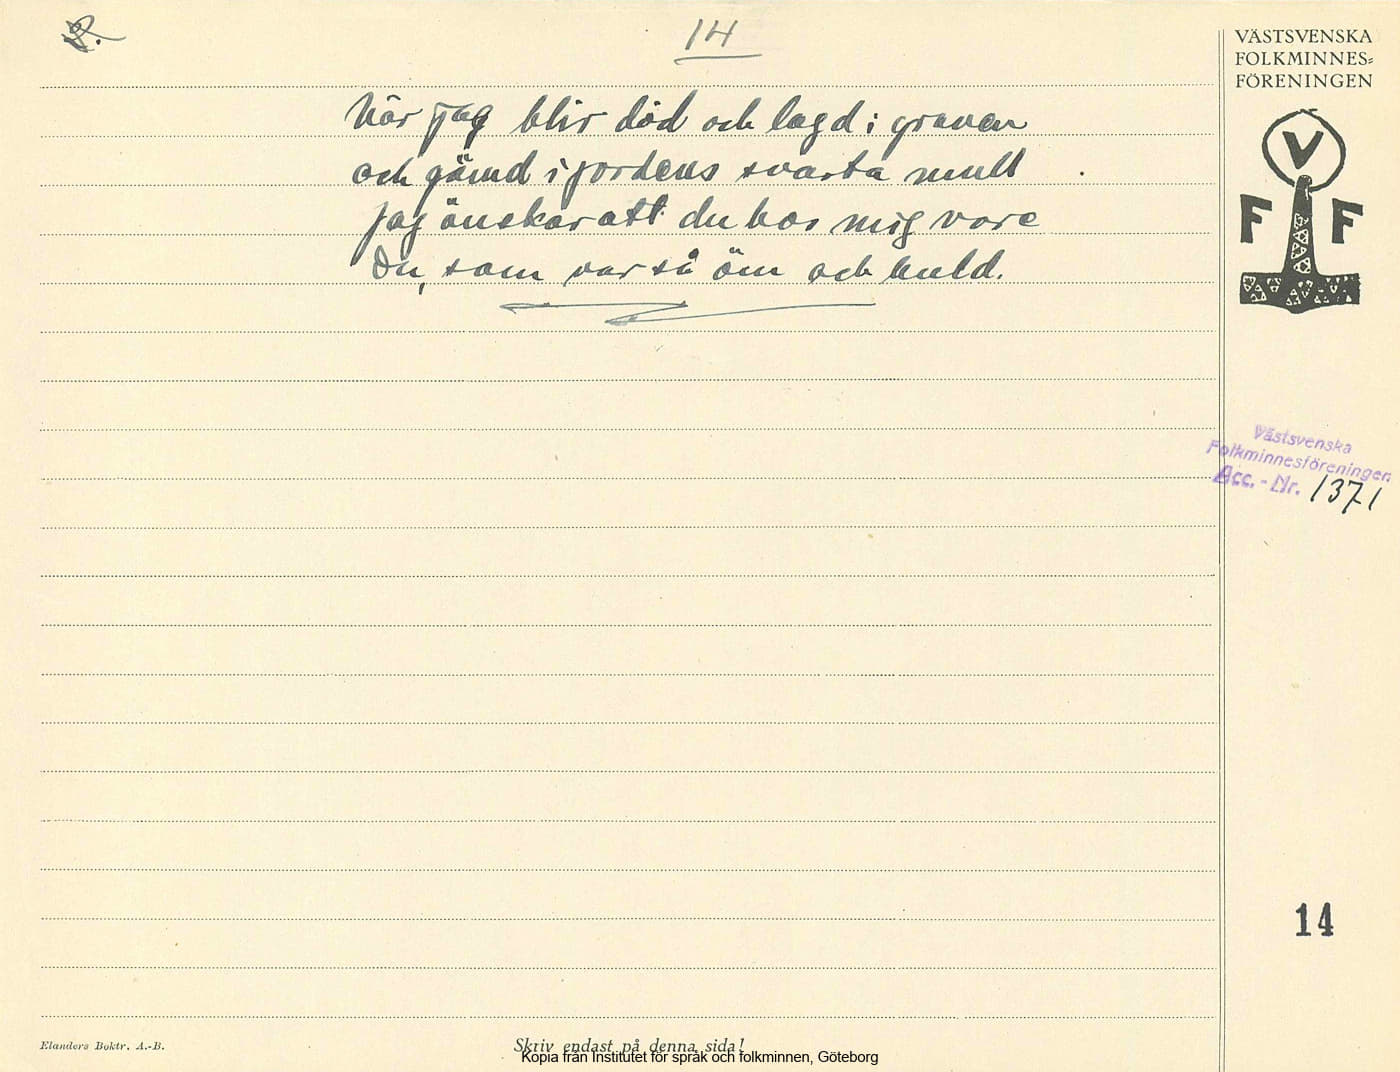 14
VÄSTSVENSKA
FOLKMINNES=
FÖRENINGEN
När jag blir död och lagd i graven
och gömd i jordens svarta mull
jag önskar att du hos mig vore
Du, som var så öm och huld.
V
F F
Västsvenska
Folkminnesföreningen
Acc.-Nr. 1371
14
Elanders Boktr. A.-B.
Skriv endast på denna sida!
Kopia från Institutet för språk och folkminnen, Göteborg